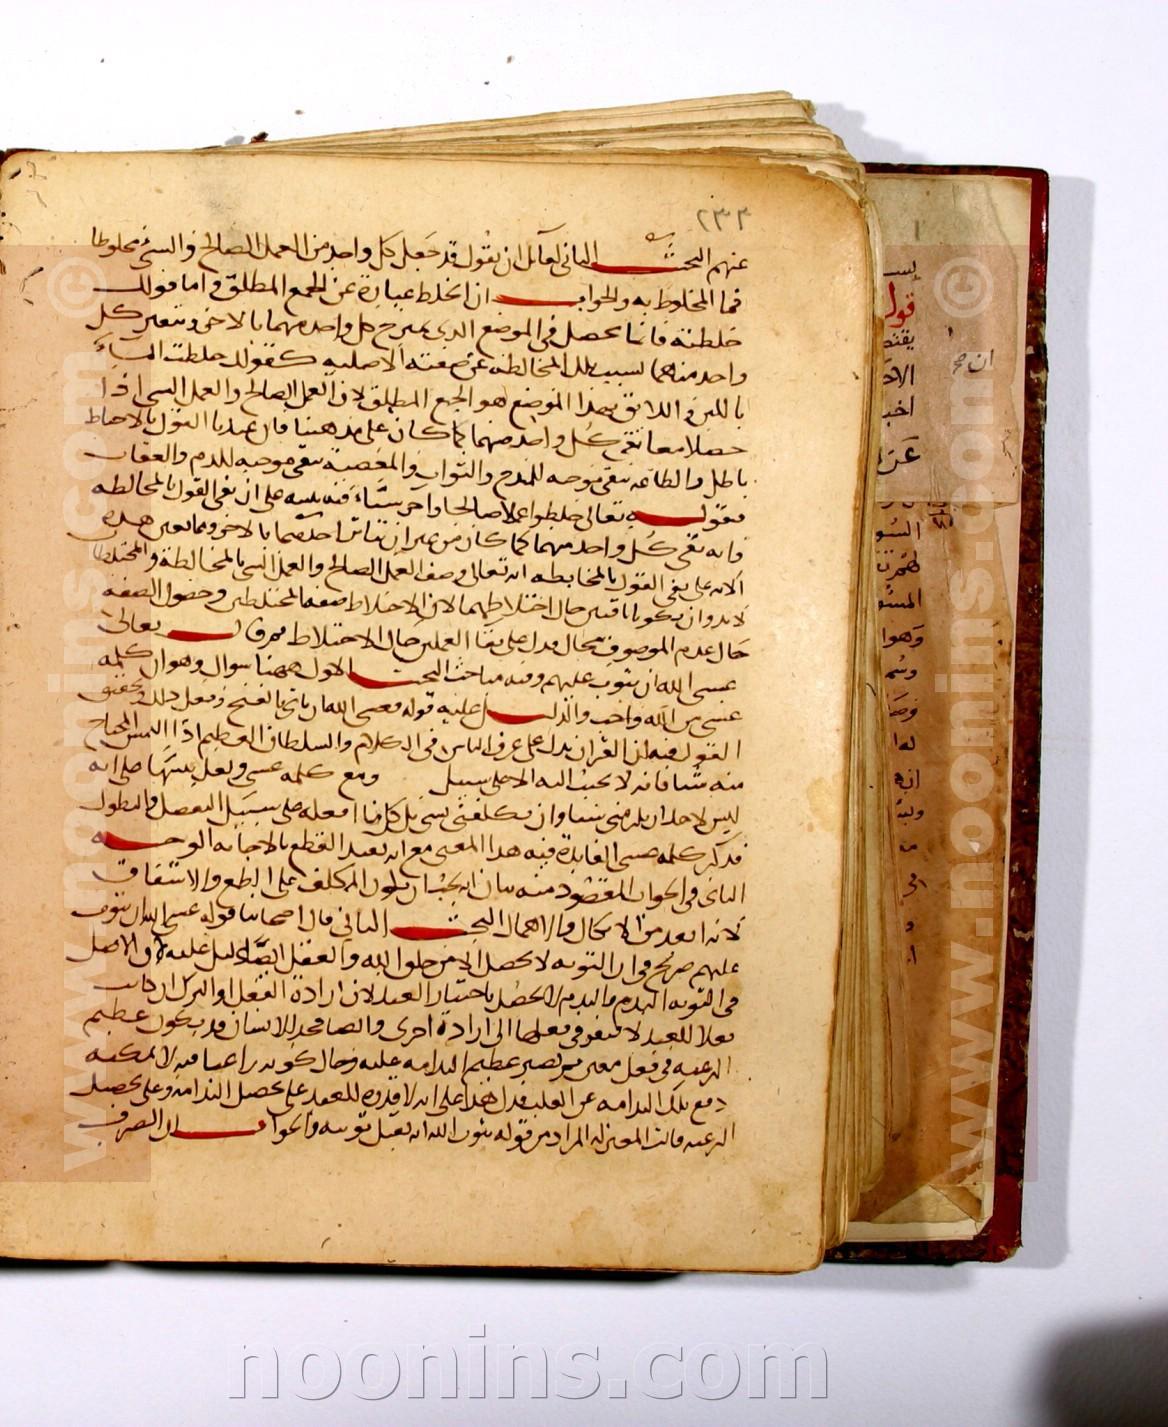 ٢٣٣
عنهم البحث الثاني لقائل ان يقول قد جعل كل واحد من العمل الصالح والسيئ مخلوطا
فما المخلوط به والجواب ان الخلط عبارة عن الجمع المطلق واما قولك
خلطته فانما يحصل في الموضع الذي يمتزج كل واحد منهما بالاخر ويتغير كل
واحد منهما بسبب تلك المخالطة عن صفته الاصلية كقولك خلطت الماء
باللبن واللائق بهذا الموضع هو الجمع المطلق لان العمل الصالح والعمل السيئ اذا
حصلا معا بقى كل واحد منهما كما كان على مذهبنا فان عندنا القول بالاحباط
باطل والطاعة تبقى موجبة للمدح والثواب والمعصية تبقى موجبة للذم والعقاب
فقوله تعالى خلطوا عملا صالحا واخر سيئا فيه تنبيه على ان نفى القول بالمخالطة
فانه بقى كل واحد منهما كما كان من غير ان يتاثر احدهما بالاخر ومما يعين هذه
الاية على نفى القول بالمخابطة انه تعالى وصف العمل الصالح والعمل السيئ بالمخالطة والمختلطان
لا بد وان يكونا باقيين حال اختلاطهما لان الاختلاط صفة للمختلطين وحصول الصفة
حال عدم الموصوف محال فدل على بقاء العملين حال الاختلاط ثم قال تعالى
عسى الله ان يتوب عليهم وفيه مباحث البحث الاول ههنا سوال وهو ان كلمة
عسى من الله واجب والدليل عليه قوله فعسى الله ان ياتي بالفتح وفعل ذلك وتحقيق
القول فيه ان القران نزل على عرف الناس في الكلام والسلطان العظيم اذا التمس المحتاج
منه شيئا فانه لا يجيب اليه الا على سبيل ومع كلمة عسى ولعل تنبيها على انه
ليس لاحد ان يلزمني شيئا وان يكلفني بشئ بل كل ما افعله على سبيل التفضل والتطول
فذكر كلمة عسى الفايدة فيه هذا المعنى مع انه يفيد القطع بالاجابة الوجه
الثاني في الجواب المقصود منه بيان انه يجب ان يكون المكلف على الطمع والاشفاق
لانه ابعد من الاتكال والاهمال البحث الثاني قال اصحابنا قوله عسى الله ان يتوب
عليهم صريح في ان التوبة لا تحصل الا من خلق الله والعقل ايضا دليل عليه لان الاصل
في التوبة الندم والندم لا يحصل باختيار العبد لان ارادة الفعل او الترك ان كانت
فعلا للعبد لافتقر في فعلها الى ارادة اخرى وايضا فحد الانسان قد يكون عظيم
الرغبة في فعل معين ثم يصير عظيم الندامة عليه وحال كونه راغبا فيه لا يمكنه
دفع تلك الندامة عن القلب فدل هذا على انه لا قدرة للعبد على تحصيل الندامة وعلى تحصيل
الرغبة قالت المعتزلة المراد من قوله يتوب الله انه يقبل توبته والجواب ان الصرف
قول
ان صح
www.noonins.com ©
www.noonins.com ©
noonins.com